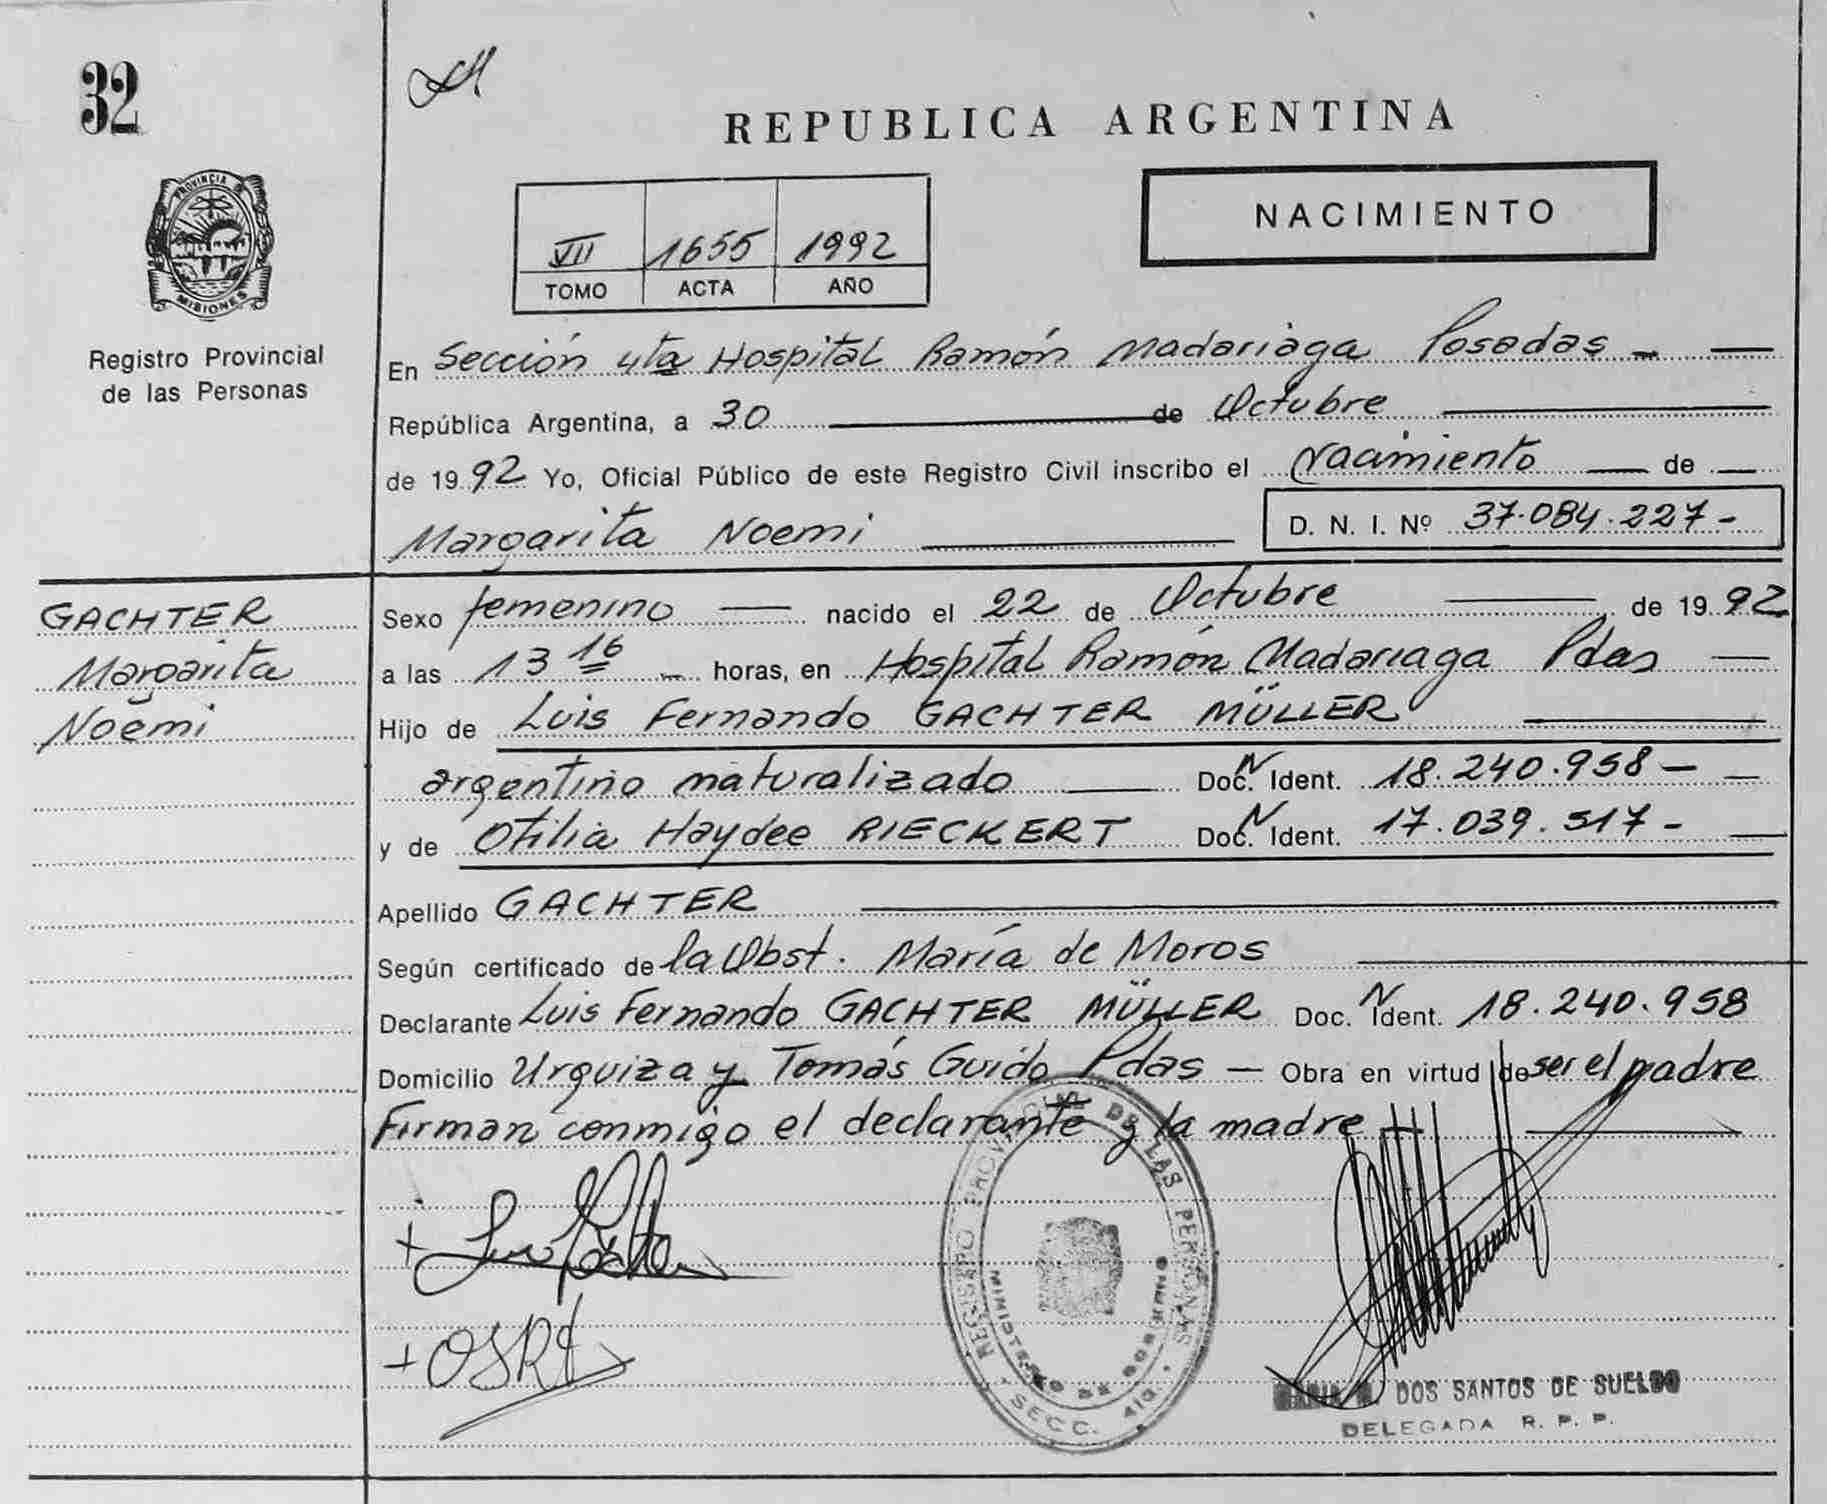 32
REPUBLICA ARGENTINA
PROVINCIA DE
MISIONES
Registro Provincial
de las Personas
VII 1655 1992
TOMO ACTA AÑO
NACIMIENTO
En Sección 4ta Hospital Ramón Madariaga Posadas - —
República Argentina, a 30 — de Octubre —
de 1992 Yo, Oficial Público de este Registro Civil inscribo el Nacimiento — de —
Margarita Noemi —
D. N. I. Nº 37.084.227-
GACHTER
Margarita
Noemi
Sexo femenino — nacido el 22 de Octubre — de 1992
a las 13 16 - horas, en Hospital Ramón Madariaga Pdas —
Hijo de Luis Fernando GACHTER MÜLLER —
argentino naturalizado — Doc. N Ident. 18.240.958 - —
y de Otilia Haydee RIECKERT Doc. N Ident. 17.039.517 - —
Apellido GACHTER —
Según certificado de la Obst. María de Moros —
Declarante Luis Fernando GACHTER MÜLLER Doc. N Ident. 18.240.958
Domicilio Urquiza y Tomás Guido Pdas — Obra en virtud de ser el padre
Firman conmigo el declarante y la madre —
REGISTRO PROVINCIAL DE LAS PERSONAS
MINISTERIO DE GOBIERNO
SECC. 4ta.
+ OSRt
DOS SANTOS DE SUELDO
DELEGADA R. P. P.